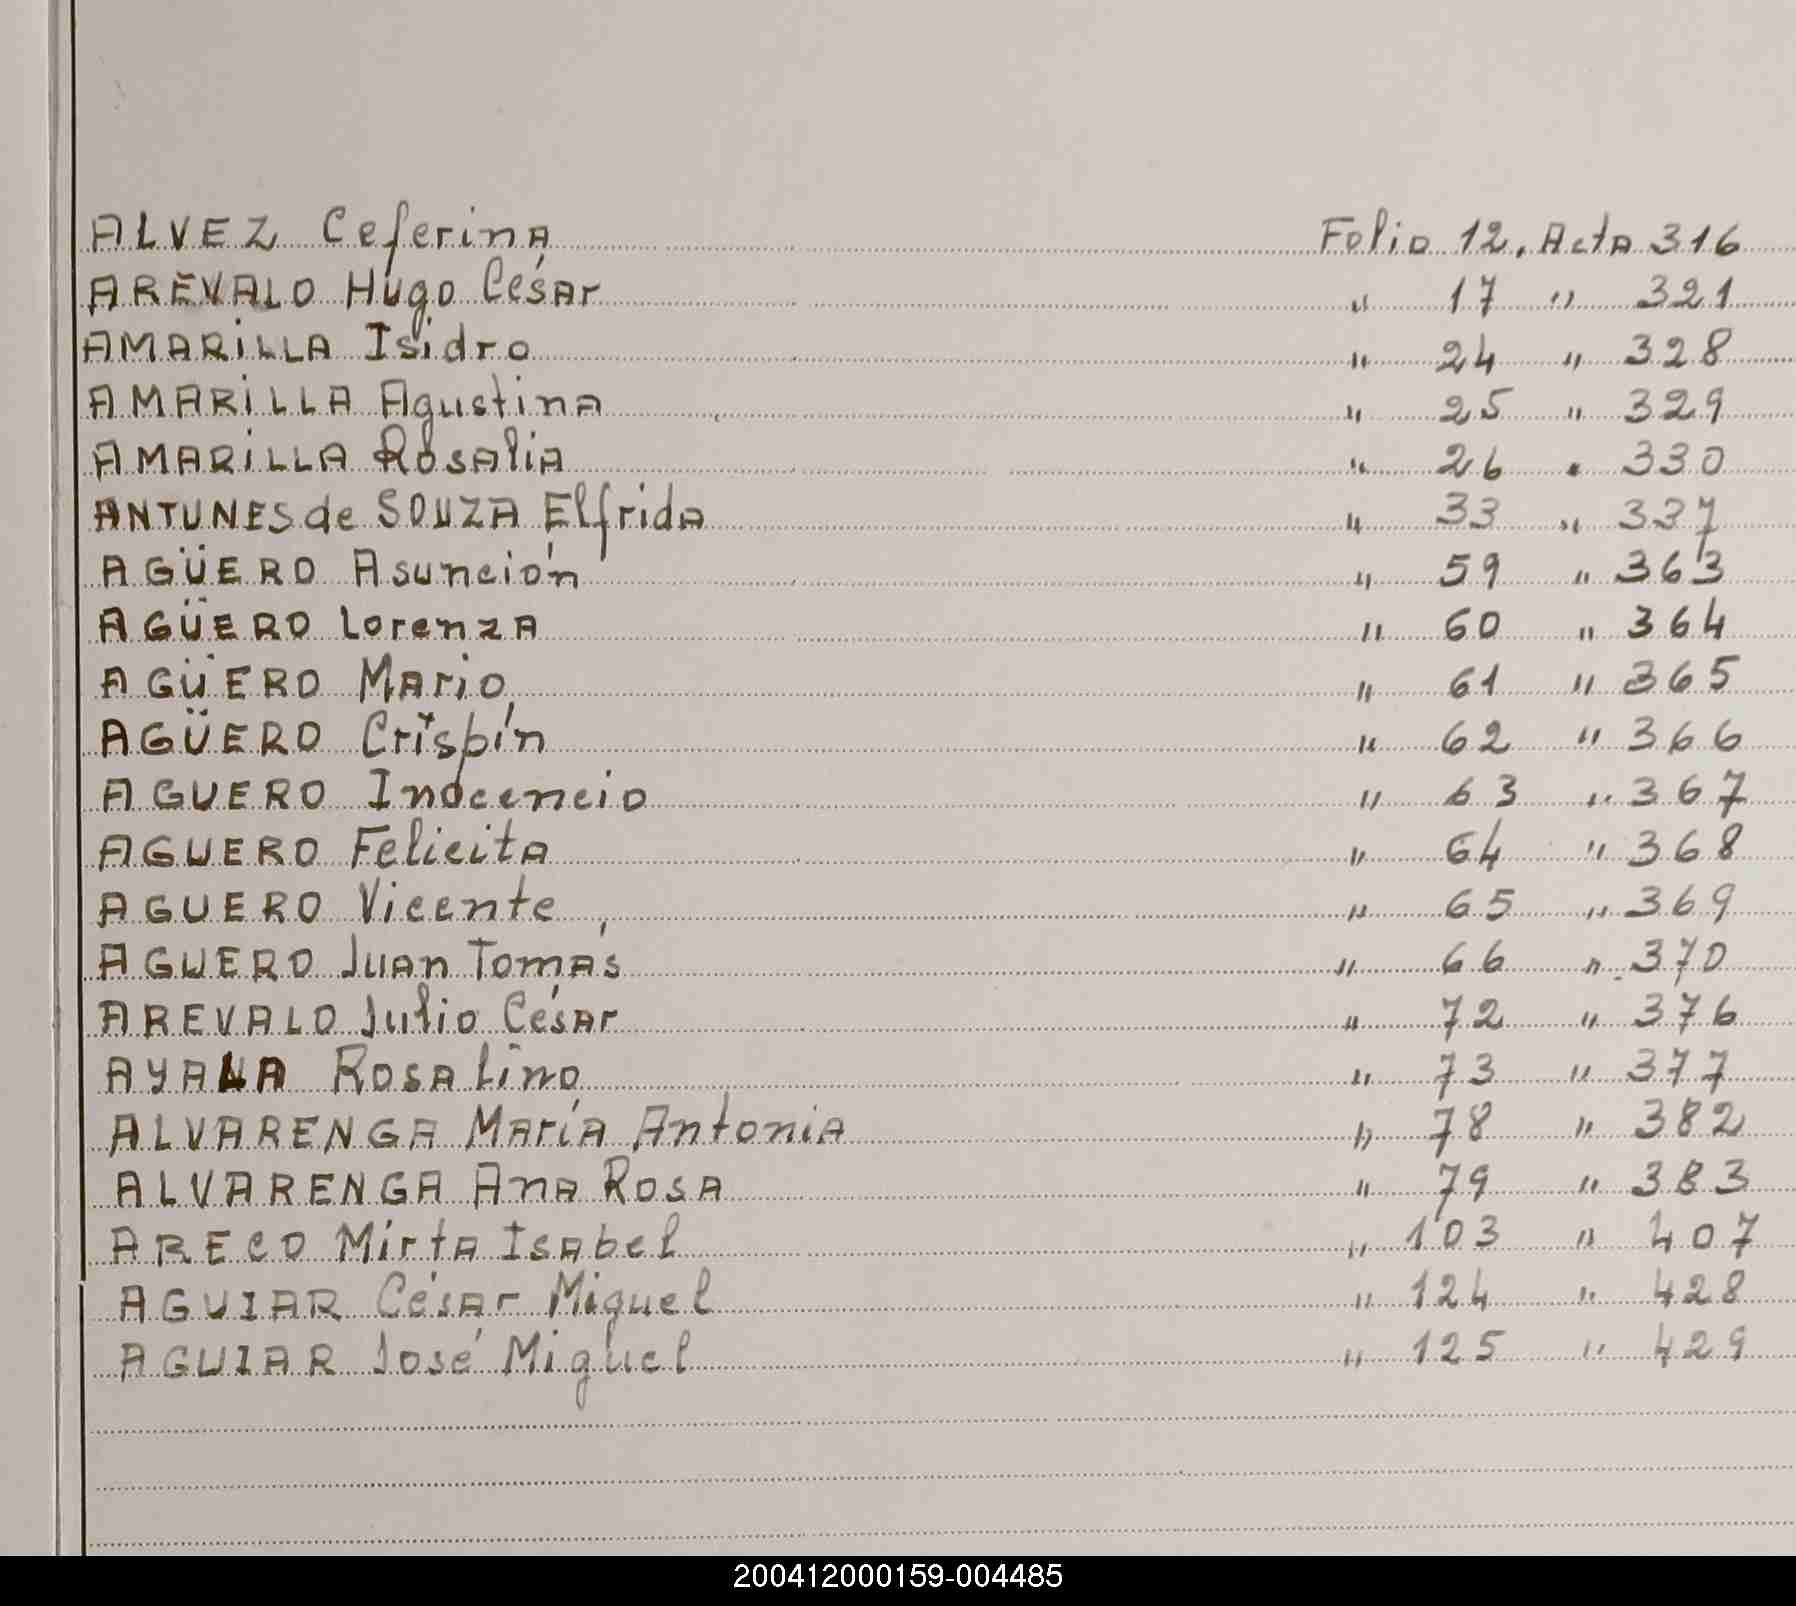 ALVEZ Ceferina Folio 12, Acta 316
ARÉVALO Hugo César " 17 " 321
AMARiLLA Isidro " 24 " 328
AMARiLLA Agustina " 25 " 329
AMARiLLA Rosalia " 26 " 330
ANTUNES de SOUZA Elfrida " 33 " 337
AGÜERO Asunción " 59 " 363
AGÜERO Lorenza " 60 " 364
AGÜERO Mario " 61 " 365
AGÜERO Crispín " 62 " 366
AGUERO Inocencio " 63 " 367
AGUERO Felicita " 64 " 368
AGUERO Vicente " 65 " 369
AGUERO Juan Tomás " 66 " 370
AREVALO Julio César " 72 " 376
AYALA Rosalino " 73 " 377
ALVARENGA María Antonia " 78 " 382
ALVARENGA Ana Rosa " 79 " 383
ARECO Mirta Isabel " 103 " 407
AGUIAR César Miguel " 124 " 428
AGUIAR José Miguel " 125 " 429
200412000159-004485